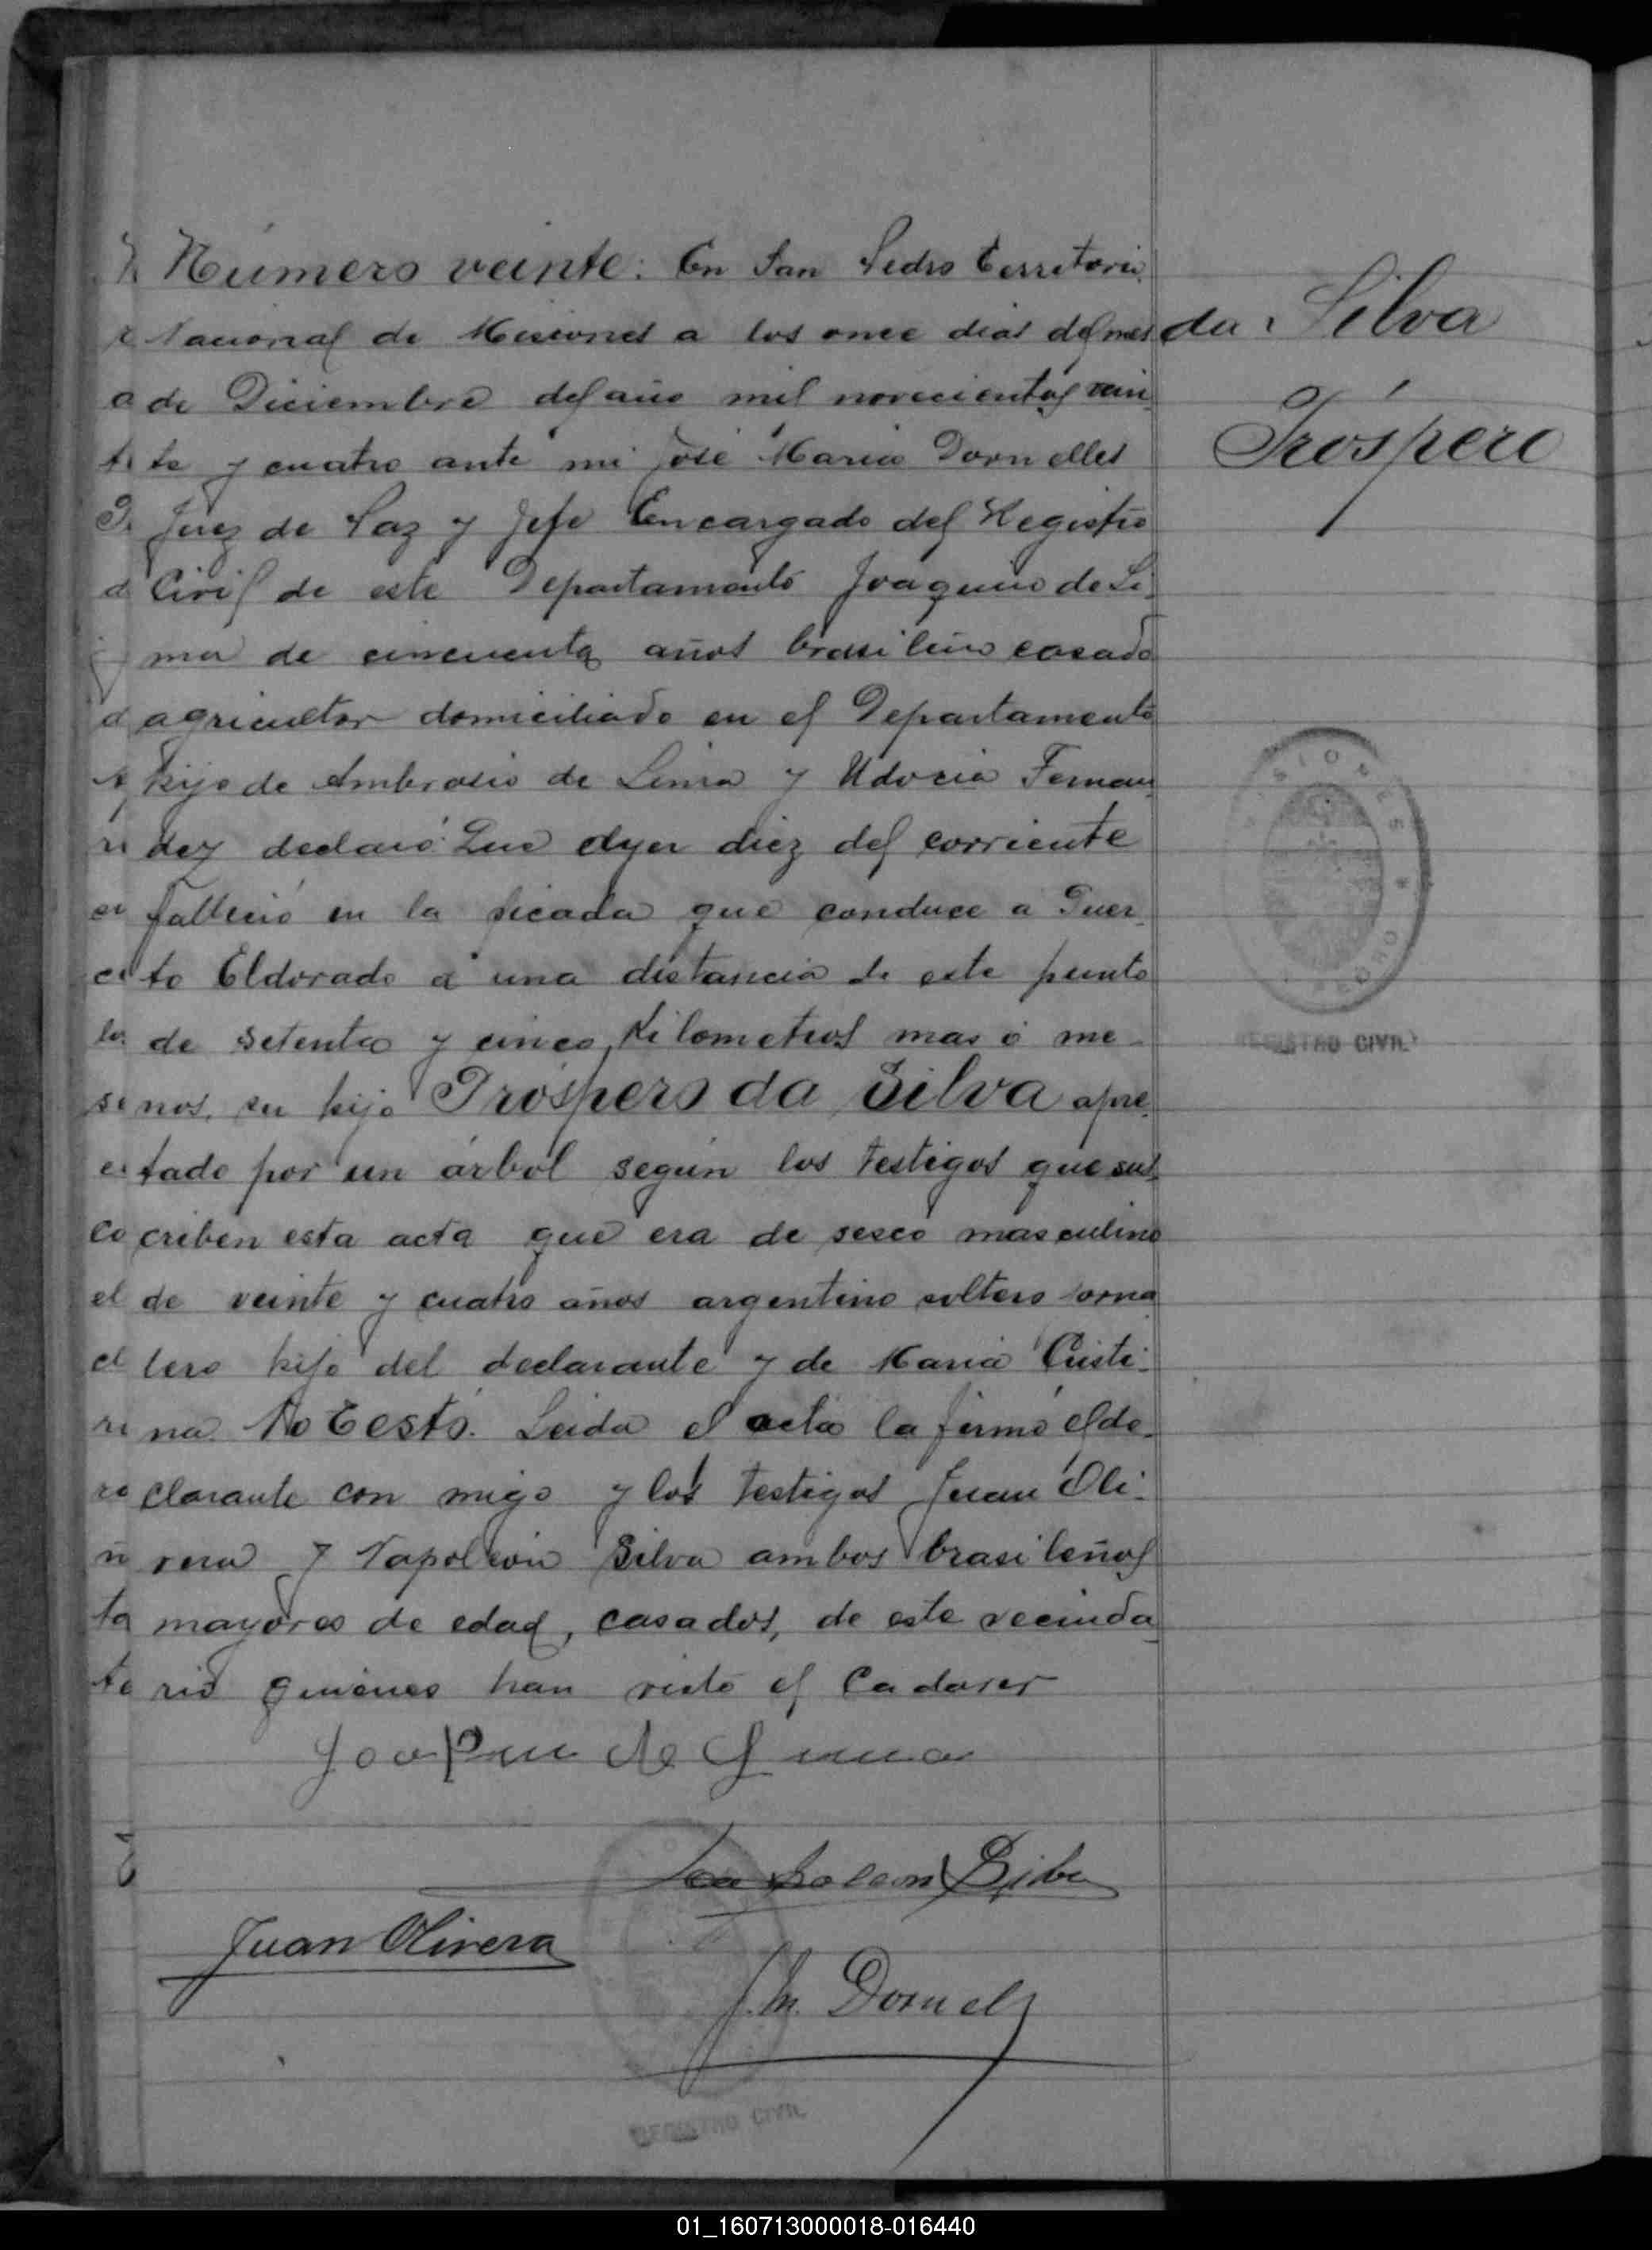 Número veinte: En San Pedro Territorio
Nacional de Misiones a los once dias del mes
de Diciembre del año mil novecientos vein
te y cuatro ante mi José Maria Dornelles
Juez de Paz y Jefe Encargado del Registro
Civil de este Departamento Joaquin de Li-
ma de cincuenta años brasileño casado
agricultor domiciliado en el Departamento
hijo de Ambrosio de Lima y Udocia Fernan
dez declaró: Que Ayer diez del corriente
falleció en la picada que conduce a Puer
to Eldorado a una distancia de este punto
de setenta y cinco Kilometros mas ó me-
nos, su hijo Próspero da Silva apre
tado por un árbol según los testigos que sus
criben esta acta que era de sesco masculino
de veinte y cuatro años argentino soltero jorna
lero hijo del declarante y de Maria Cristi-
na. No Testó. Leida el acta la firmó el de-
clarante con migo y los testigos Juan Oli-
vera y Napoleón Silva ambos brasileños
mayores de edad, casados, de este vecinda
rio quienes han visto el Cadaver
Joaquin de Lima
Napoleon Silva
Juan Olivera
J. M. Dornels
REGISTRO CIVIL
da Silva
Próspero
MISIONES
REGISTRO CIVIL
01_160713000018-016440